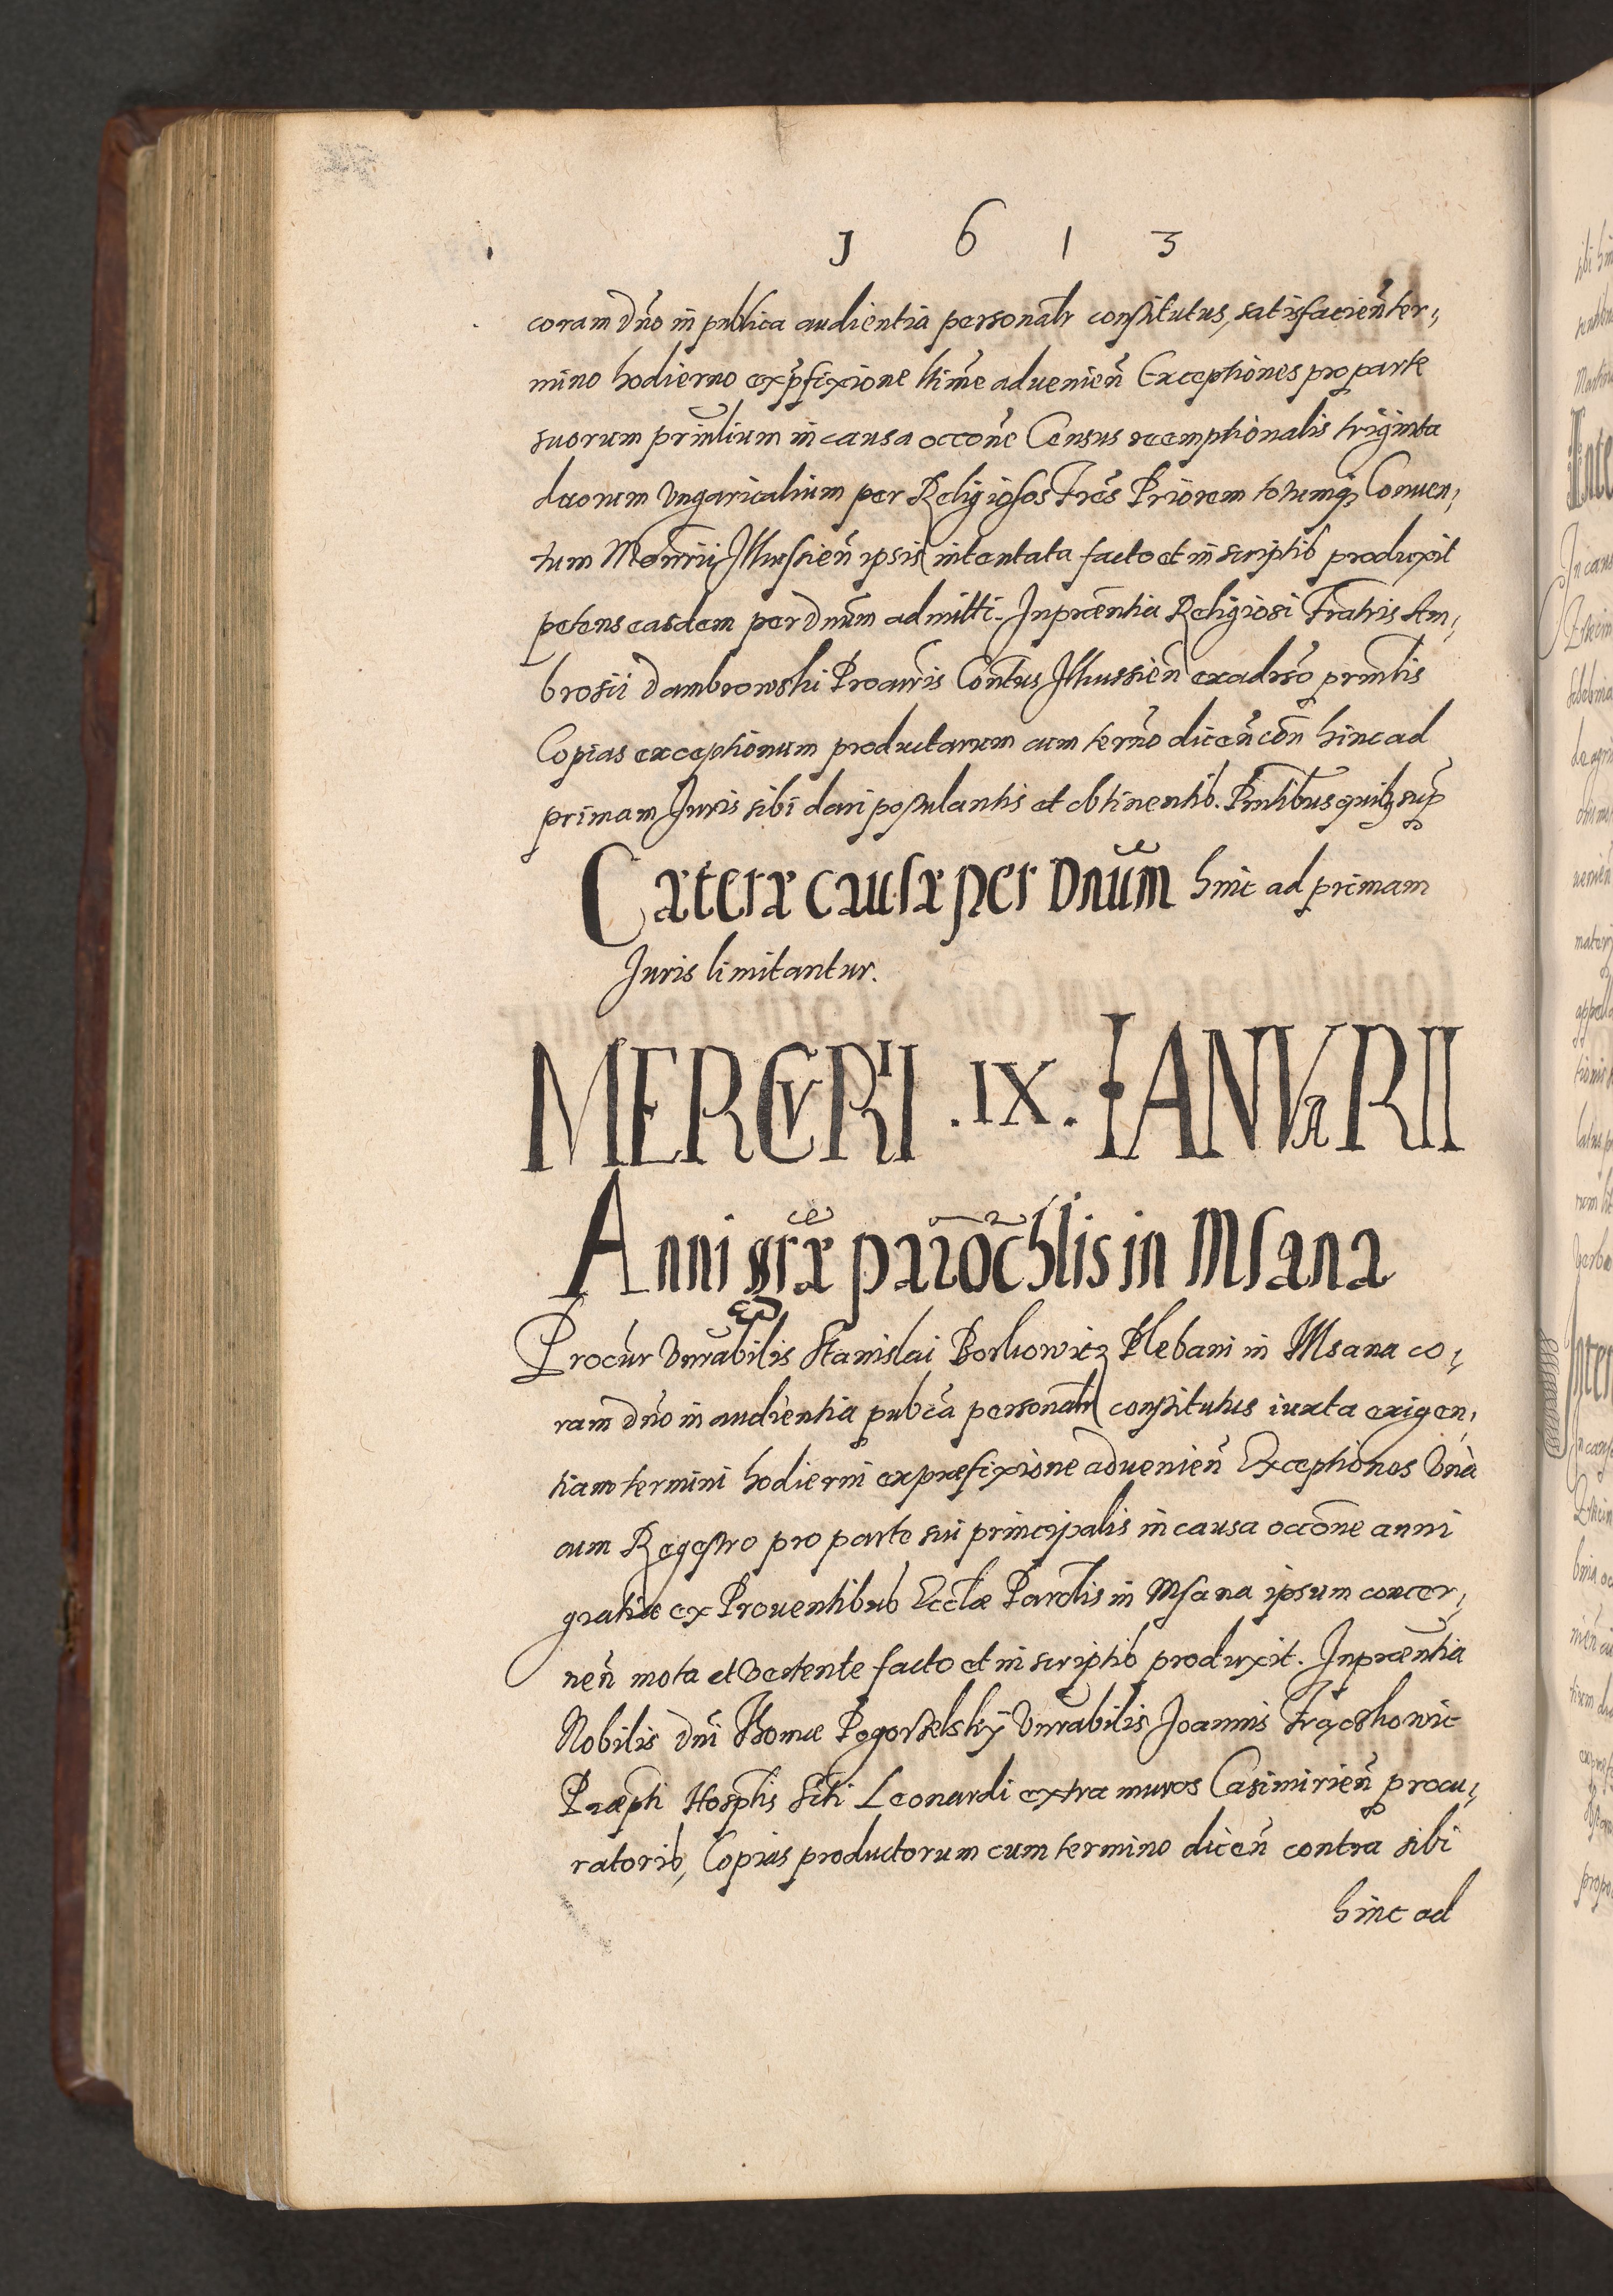 1 6 1 3
coram dño in publica audientia personalr constitutus, satisfacieñ ter,
mino hodierno ex p̃fixione ltime advenieñ Exceptiones pro parte
suorum prinlium in causa occoñe Census reemptionalis triginta
duorum Vngaricalium per Religiosos Fres̃ Priorem totumq; Conuen,
tum Monr̃ii Ilkussien̄ ipsis intentata facto et in scriptib produxit
petens easdem per Dnũm admitti. In præntia Religiosi Fratris Am,
brosii Dambrowski Procur̃is Contus̃ Ilkussieñ ex adrso prinlis
Copias exceptionum productarum cum termo diceñ con̄ hinc ad
primam Juris sibi dari postulantis et obtinentib. Pñtibus quib; sup̃
Cæteræ causæ per Dnũm hinc ad primam
Juris limitantur.
MERCVRII .IX. IANVARII
Anni gr̃æ parochlis in Msana
Procur̃ Vnrabilis Stanislai Borkowicz Plebani in Msana co,
ram dño in audientia pubca personalr constitutus iuxta exigen,
tiam termini hodierni ex præfixione advenieñ Exceptiones Vnà
cum Regestro pro parte sui principalis in causa occone anni
gratiæ ex Prouentibus Ecclæ Parolis in Msana ipsum concer,
neñ mota et Vertente facto et in scriptib produxit. In præntia
Nobilis Dni Thomæ Pogorselskÿ Vnrabilis Joannis Frączkowic
Præpti Hosptis Scti Leonardi extra muros Casimirieñ procu,
ratorib, Copias productorum cum termino diceñ contra sibi
hinc ad